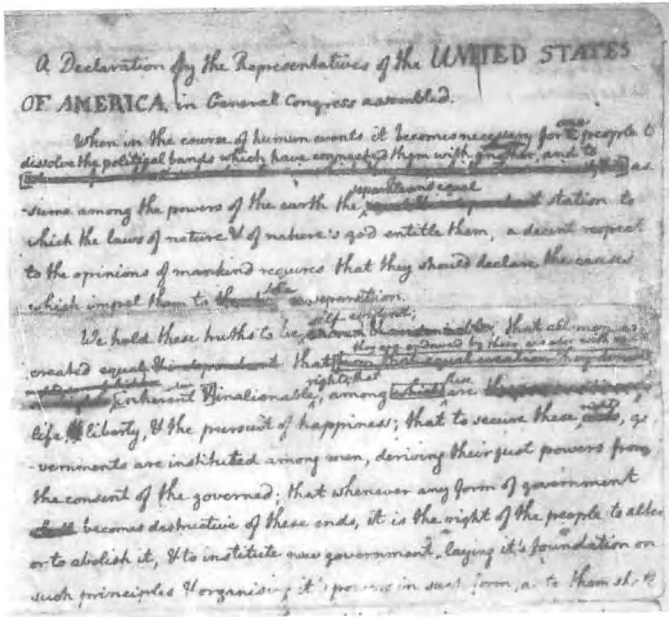 A Declaration by the Representatives of the UNITED STATES
OF AMERICA, in General Congress assembled.
When in the course of human events it becomes necessary for one people to
dissolve the political bands which have connected them with another, and to
as
separate and equal
-sume among the powers of the earth the station to
which the laws of nature & of nature's god entitle them, a decent respect
to the opinions of mankind requires that they should declare the causes
which impel them to the separation.
self-evident;
We hold these truths to be that all men are
they are endowed by their creator with
created equal & independent that from that equal creation they derive
rights; that these
inherent & inalienable among which are
life, & liberty, & the pursuit of happiness; that to secure these rights, go
-vernments are instituted among men, deriving their just powers from
the consent of the governed; that whenever any form of government
shall becomes destructive of these ends, it is the right of the people to alter
or to abolish it, & to institute new government, laying it's foundation on
such principles & organising it's powers in such form, as to them sh